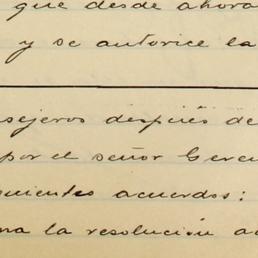 que desde ahora
y se autorice la
sejeros después de
por el señor Geren
guientes acuerdos:
na la resolución a